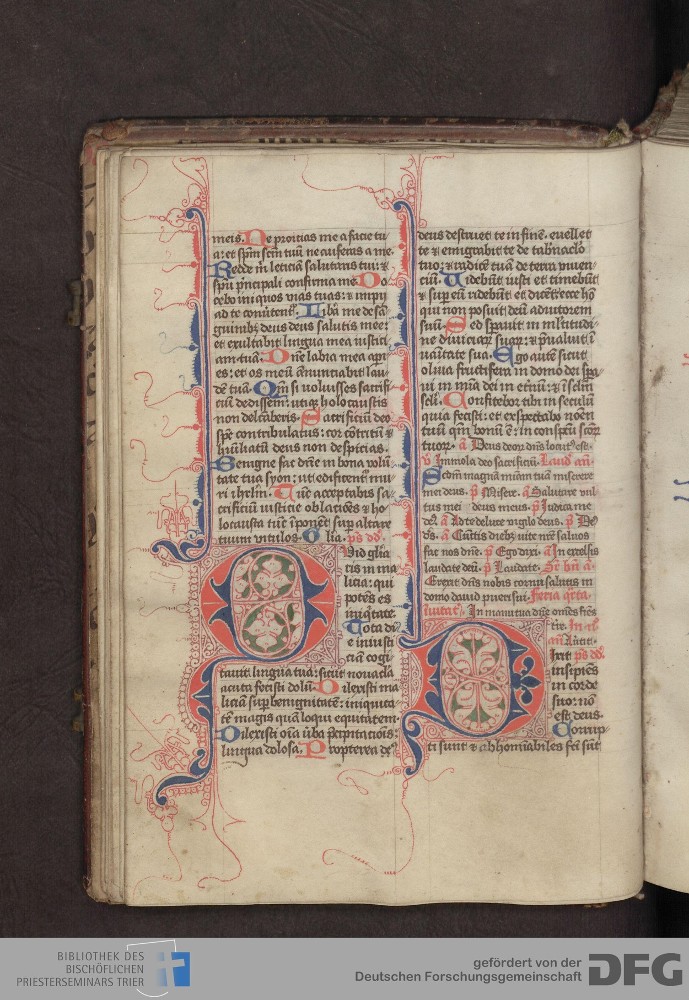 meis. Ne proicias me a facie tu
a: et spm scm tuu ne auferas a me.
Redde m leticia salutaris tui: &
spu pncipali confirma me. Do
cebo iniquos vias tuas: & impii
ad te conutent. Liba me de sa
guinibz deus deus salutis mee:
et exultabit lingua mea iustici
am tua. Dne labia mea apri
es: et os meu annuntiabit lau
de tua. Qm si voluisses sacrifi
ciu dedissem: utiqz holocaustis
non delectaberis. Sacrificiu deo
sps contribulatus: cor cotritu &
humiliatu deus non despicias.
Benigne fac dne in bona volu
tate tua syon: ut edificent mu
ri ihrlm. Tuc acceptabis sa
crificiu iusticie oblacoes & ho
locausta: tuc iponet sup altare
tuum vitulos. Glia. ps dd.
Quid glia
ris in ma
licia: qui
potes es
iniqtate.
Tota di
e iniusti
cia cogi
tauit lingua tua: sicut nouacla
acuta fecisti dolu. Dilexisti ma
licia sup benignitate: iniquita
te magis qua loqui equitatem.
Dilexisti oia uba pcipitacois:
lingua dolosa. Propterea de
deus destruet te in fine. euellet
te & emigrabit te de tabnaclo
tuo: & radice tua de terra viuen
ciu. Videbut iusti et timebut
& sup eu ridebut et dicet: ecce ho
qui non posuit deu adiutorem
suu. Sed sperauit in mltitudi
ne diuiciar suar: & pualuit i
uanitate sua. Ego aute sicut
oliua fructifera in domo dei spa
ui in mia dei in etnu: & i sclm
scli. Confitebor tibi in seculu
quia fecisti: et exspectabo nomen
tuu qm bonu e: in conspcu scor
tuor. a Deus deor dns locut est.
v Immola deo sacrificiu. Laud an.
Scdm magna miam tua miserere
mei deus. p Misere. a Salutare vul
tus mei deus meus. p Iudica me
de. a Ad te de luce vigilo deus. p De
ds. a Cuctis diebz vite nre saluos
fac nos dne. p Ego dixi. a In excelsis
laudate deu. p Laudate. Sr bn a.
Erexit dns nobis cornu salutis in
domo dauid pueri sui. Feria qrta
In manu tua dne omes fines
tre.
Ixit ps dd.
insipiens
in corde
suo: no
est deus.
Corrup
ti sunt & abhominabiles fci sut
BIBLIOTHEK DES
BISCHÖFLICHEN
PRIESTERSEMINARS TRIER
gefördert von der
Deutschen Forschungsgemeinschaft
DFG